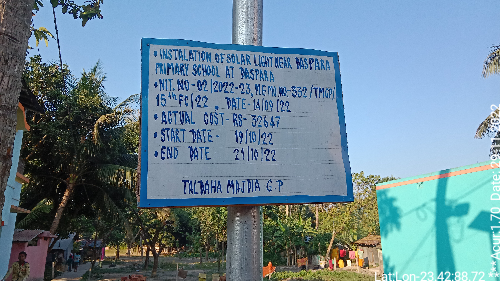 • INSTALATION OF SOLAR LIGHT NEAR DASPARA
PRIMARY SCHOOL AT DASPARA
• NIT. NO-02/2022-23, MEMO NO-532/TMGP/
15th FC/22, DATE-14/09/22
• ACTUAL COST- RS- 32647
• START DATE- 19/10/22
• END DATE 21/10/22
TALDAHA MAJDIA G.P
Lat:Lon-23.42:88.72